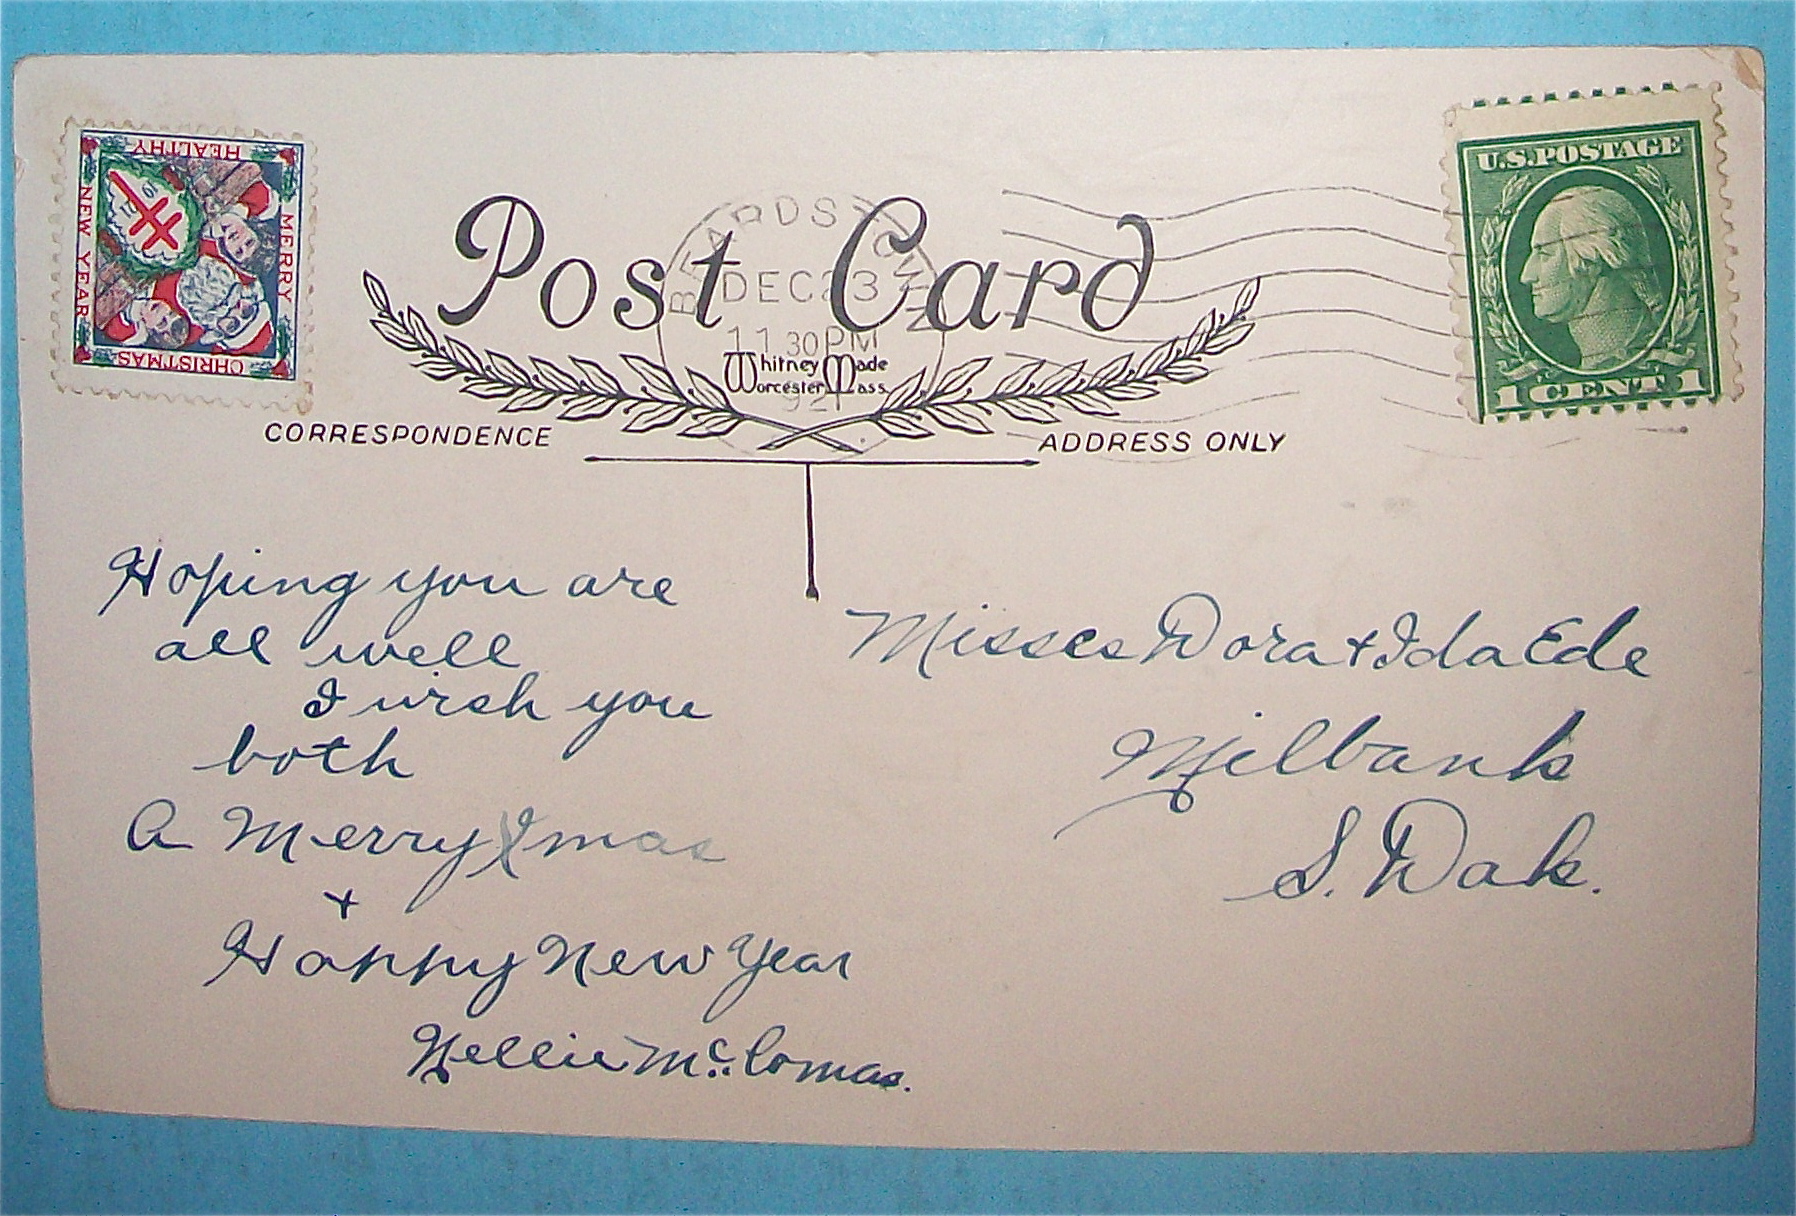 HEALTHY
NEW YEAR
MERRY
CHRISTMAS
Post Card
DEC 23
11 30 PM
Whitney Made
Worcester Mass
U.S. POSTAGE
1 CENT 1
CORRESPONDENCE
ADDRESS ONLY
Hoping you are
all well
I wish you
both
A Merry Xmas
+
Happy New Year
Nellie Mc. Comas.
Misses Dora + Ida Ede
Milbank
S. Dak.